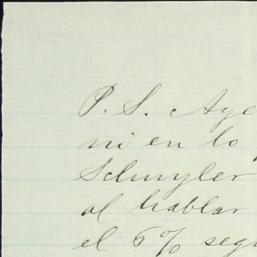 P. S. Aye
ni en lo
Schuyler
al hablar
el 6% segu